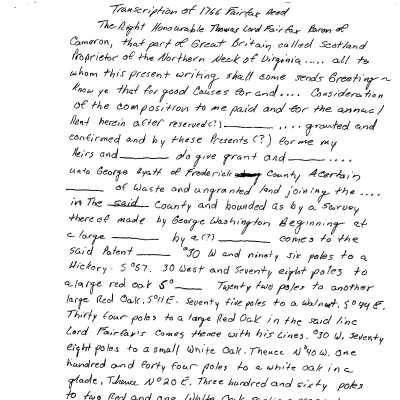 Transcription of 1766 Fairfax Deed
The Right Honourable Thomas Lord Fairfax Baron of
Cameron, that part of Great Britain called Scotland
Proprietor of the Northern Neck of Virginia.... all to
whom this present writing shall come sends Greeting ~
Know ye that for good Causes for and.... Consideration
of the composition to me paid and for the annual
Rent herein after reserved(?) ________ .... granted and
confirmed and by these Presents(?) for me my
Heirs and ________ do give grant and ________ ....
unto George Hyatt of Frederick County A certain
________ of Waste and ungranted land joining the ....
in The said County and bounded as by a survey
thereof made by George Washington Beginning at
a large ________ by a(?) ________ comes to the
said Patent ________ °30 W and ninety six poles to a
Hickory. S°57. 30 West and Seventy eight poles to
a large red oak S°____ Twenty two poles to another
large Red Oak. S°11 E. Seventy five poles to a Walnut. S°44 E.
Thirty four poles to a large Red Oak in the said line
Lord Fairfax's Comes thence with his Lines. °30 W. Seventy
eight poles to a small White Oak. Thence N°40 W. One
hundred and forty four poles to a white oak in a
glade, Thence N°20 E. Three hundred and sixty poles
to two Red and one White Oak